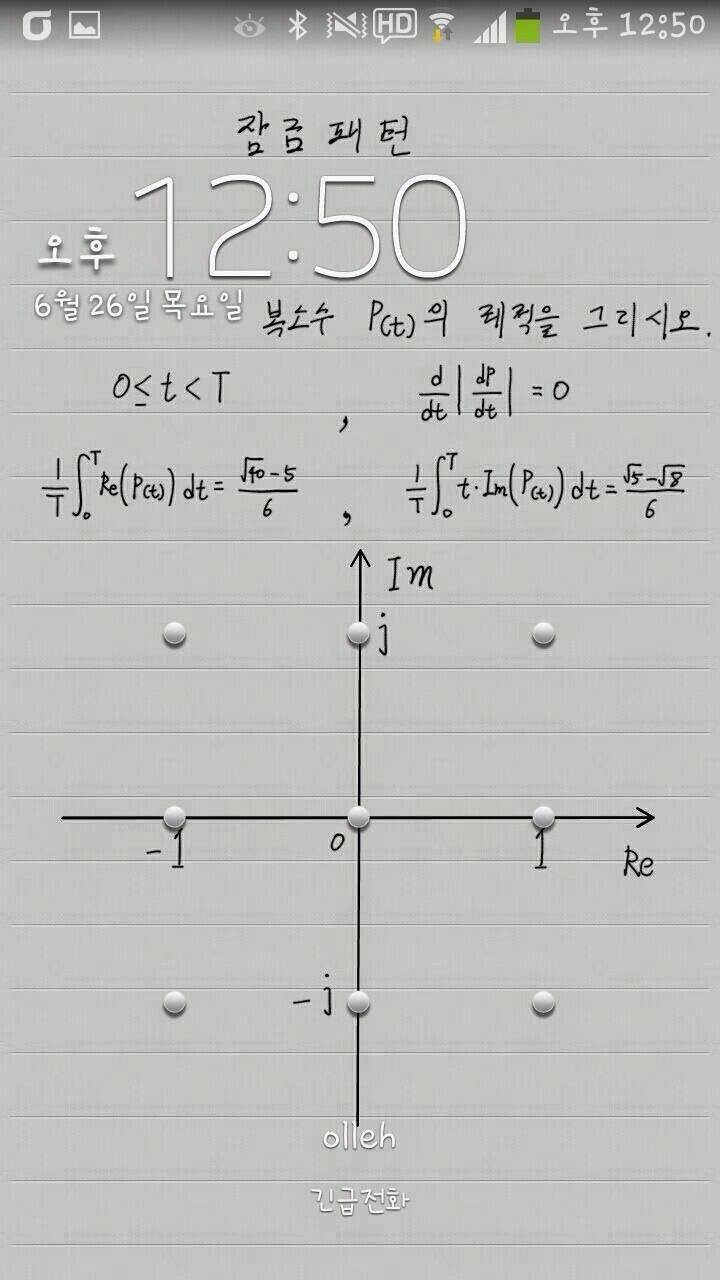 오후 12:50
잠금 패턴
오후 12:50
6월 26일 목요일
복소수 P(t)의 궤적을 그리시오.
0≤t<T , d/dt|dP/dt| = 0
1/T∫₀ᵀRe(P(t))dt = (√40-5)/6 , 1/T∫₀ᵀt·Im(P(t))dt = (√5-√8)/6
Im
j
-1 0 1
Re
-j
olleh
긴급전화